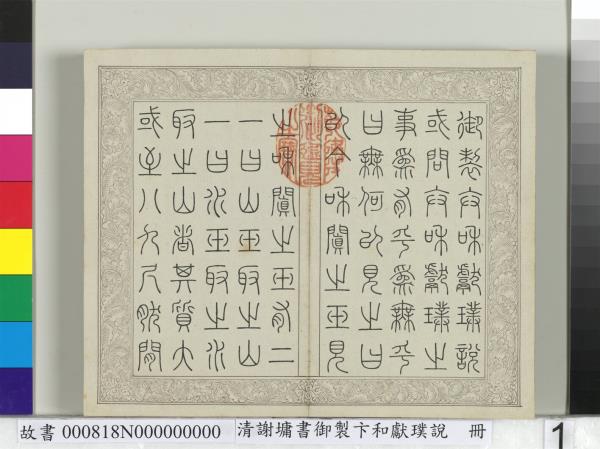 御製卞和獻璞說
或問卞和獻璞之
事為有乎為無乎
曰無何以見之曰
以今和闐之玉見
之和闐之玉有二
一曰山玉取之山
一曰水玉取之水
取之山者其質大
或至八九尺然間
故書 000818N000000000 清謝墉書御製卞和獻璞說 冊
1